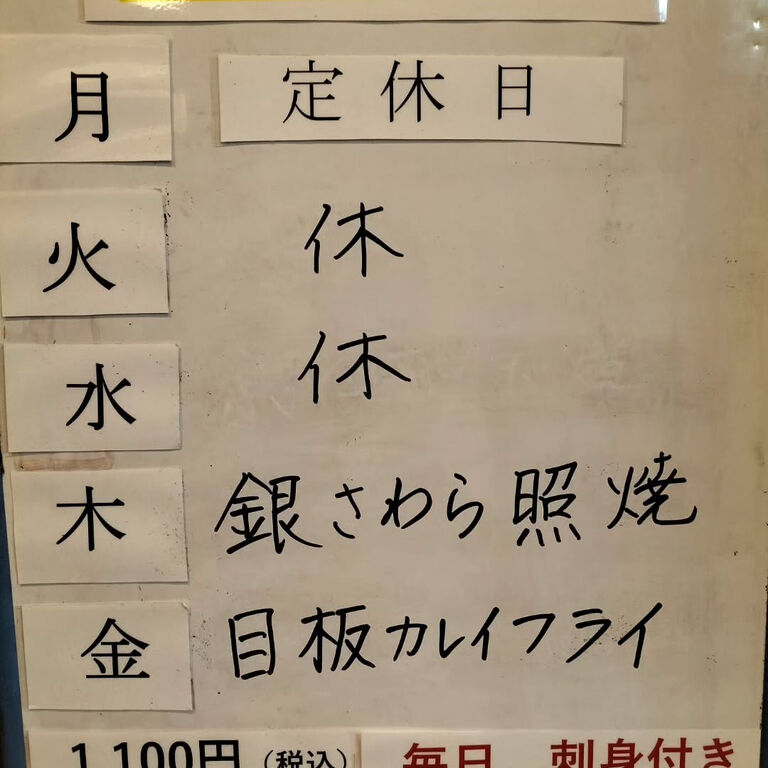 月 定休日
火 休
水 休
木 銀さわら照焼
金 目板カレイフライ
1,100円（税込） 毎日 刺身付き